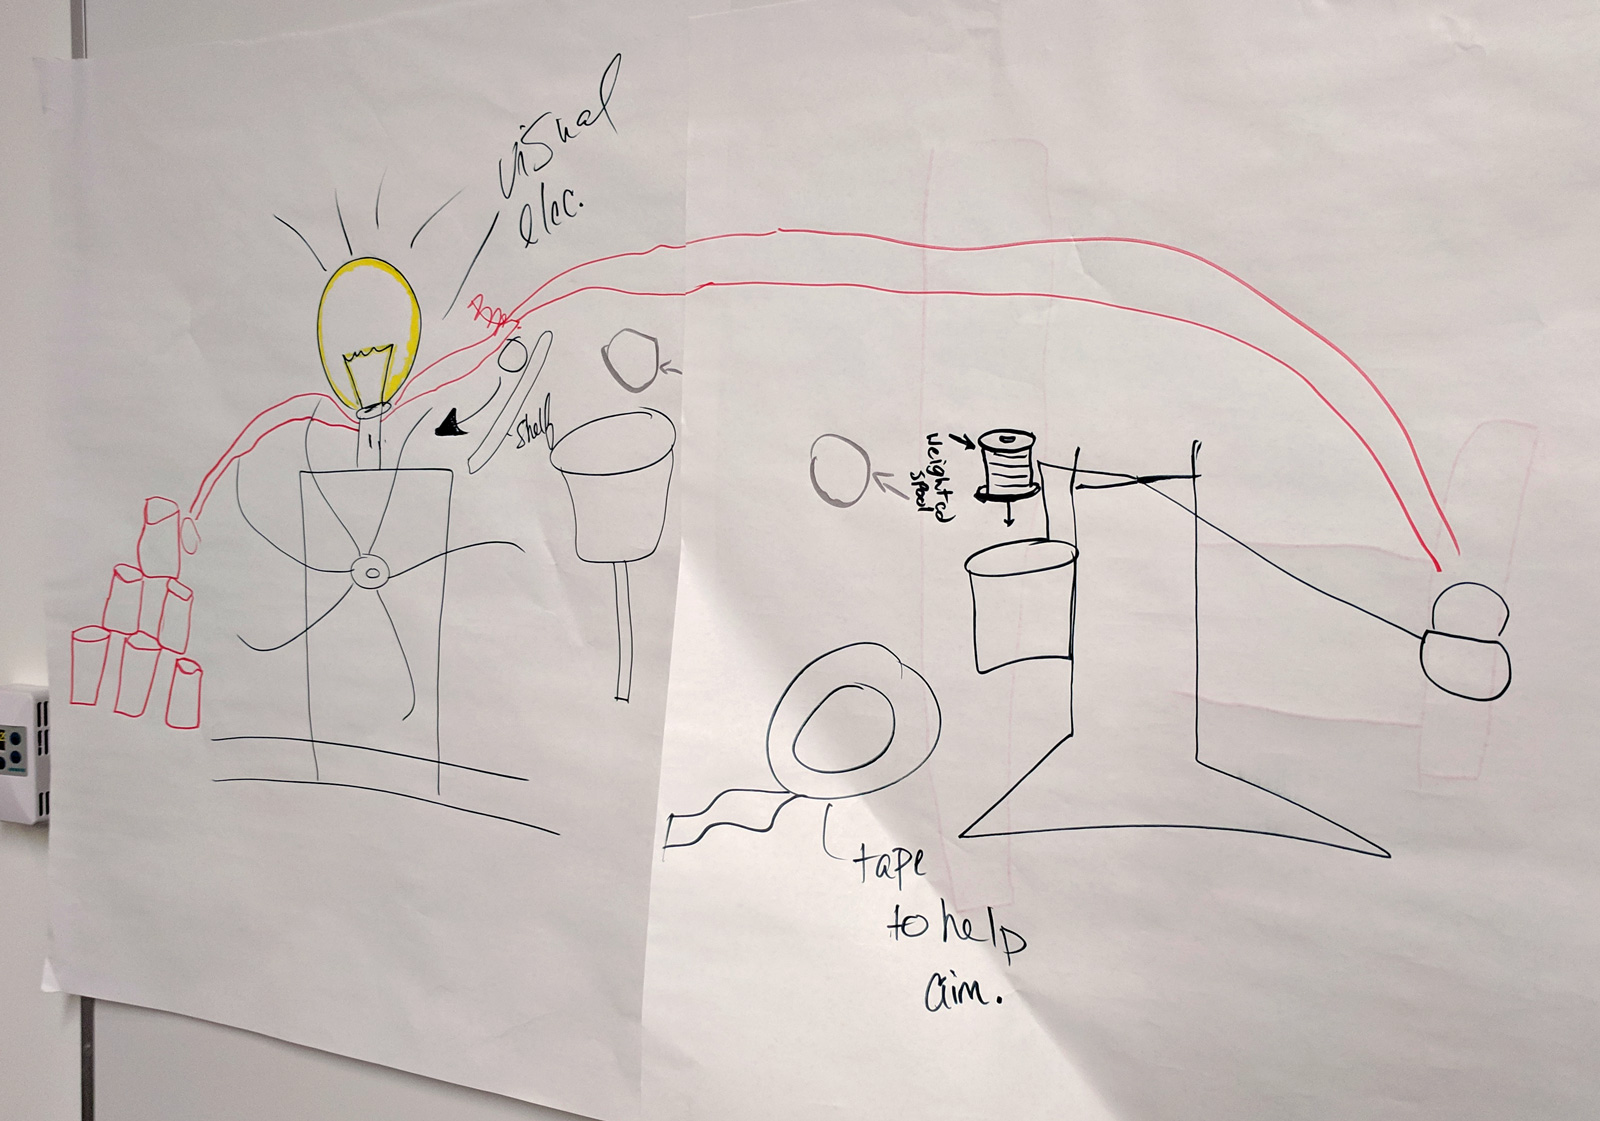 visual
elec.
shelf
weighted
spool
tape
to help
aim.